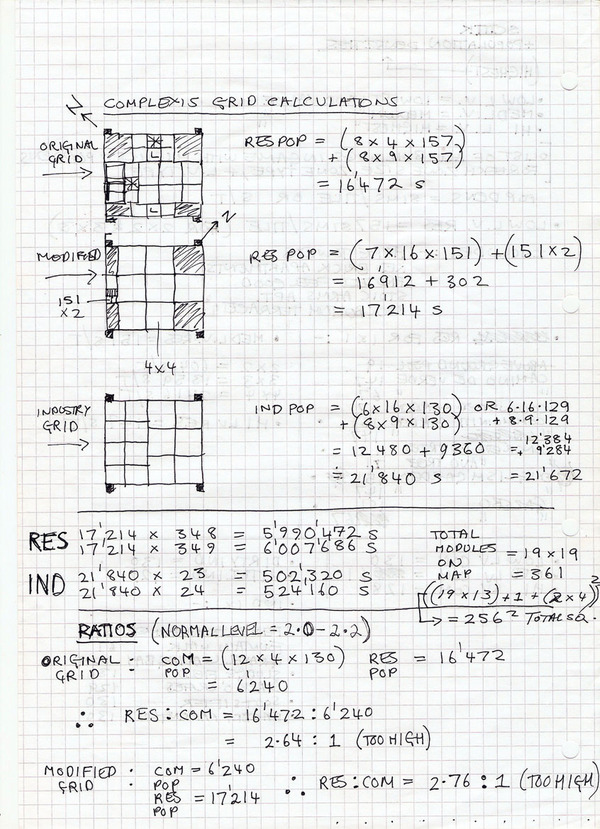 N COMPLEXIS GRID CALCULATIONS
ORIGINAL GRID
L
L
RES POP = (8 x 4 x 157)
+ (8 x 9 x 157)
= 16'472 s
N
MODIFIED
151 x 2
4x4
RES POP = (7 x 16 x 151) + (151 x 2)
= 16'912 + 302
= 17'214 s
INDUSTRY GRID
IND POP = (6 x 16 x 130) OR 6·16·129
+ (8 x 9 x 130) + 8·9·129
= 12 480 + 9360 = 12'384
+ 9'284
= 21'840 s = 21'672
RES 17'214 x 348 = 5'990'472 s
17'214 x 349 = 6'007'686 s
IND 21'840 x 23 = 502'320 s
21'840 x 24 = 524'160 s
TOTAL
MODULES = 19 x 19
ON
MAP = 361
((19 x 13) + 1 + (2 x 4))²
= 256² TOTAL SQ.
RATIOS (NORMAL LEVEL = 2.0 - 2.2)
ORIGINAL GRID : COM POP = (12 x 4 x 130) RES POP = 16'472
= 6'240
∴ RES : COM = 16'472 : 6'240
= 2.64 : 1 (TOO HIGH)
MODIFIED GRID : COM POP = 6'240
RES POP = 17'214
∴ RES : COM = 2.76 : 1 (TOO HIGH)